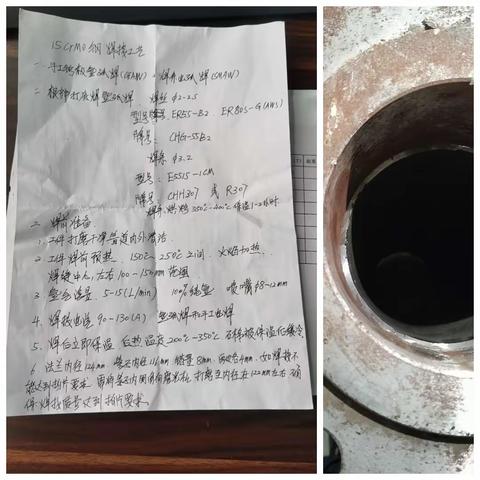 15CrMo钢 焊接工艺
一. 手工钨极氩弧焊(GTAW) 焊条电弧焊(SMAW)
二. 根部打底焊氩弧焊 焊丝 φ2-2.5
型号牌号: ER55-B2 ER80S-G(AWS)
牌号: CHG-55B2
焊条 φ3.2
型号: E5515-1CM
牌号: CHH307 或 R307
焊条烘焙350℃-400℃ 保温1-2小时
三 焊前准备
1. 工件打磨干净管道内外
2. 工件焊前预热 150℃-250℃之间 火焰加热
焊缝中心左右100-150mm范围
3 氩气流量 5-15(L/min) 100%纯氩 喷嘴φ8-12mm
4. 焊接电流 90-130(A) 氩弧焊和手工电焊
5. 焊后立即保温 后热温度200℃-350℃ 石棉被保温后缓冷
6 法兰内径124mm 管子内径116mm 错量8mm 4mm 如焊接不
能达到拍片要求 内磨光机 打磨至内径在122mm左右 确
保焊接后能达到拍片要求